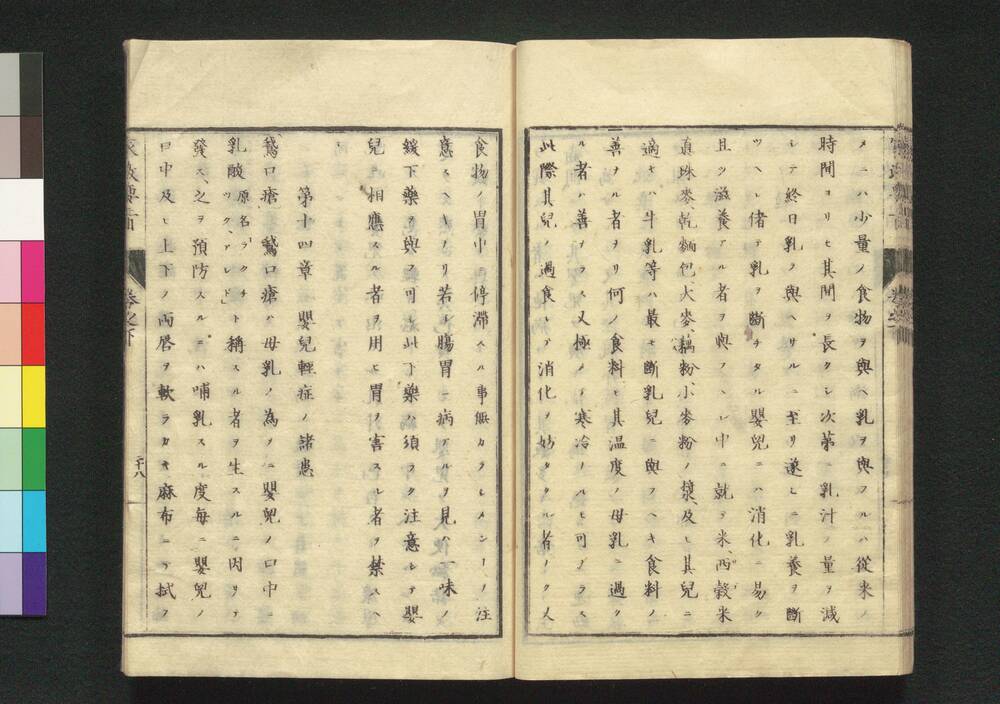 メニハ小量ノ食物ヲ與ヘ乳ヲ與フルハ從來ノ
時間ヨリモ其間ヲ長クシ次第ニ乳汁ノ量ヲ減
シテ終日乳ヲ與ヘサルニ至リ遂ヒニ乳養ヲ斷
ツヘシ偖テ乳ヲ斷チタル嬰兒ニハ消化ニ易ク
且ツ滋養アル者ヲ與フヘシ中ニ就テ米、西穀米
眞珠麥、乾麵包、大麥、藕粉、小麥粉ノ漿、及ヒ其兒ニ
適セハ牛乳等ハ最モ斷乳兒ニ與フヘキ食料ノ
善ナル者ナリ何ノ食料モ其温度ノ母乳ニ過ク
ル者ハ善カラス又極メテ寒冷ナルモ可ナラス
此際其兒ノ過食シテ消化ヲ妨タクル者ナク又
食物ノ胃中ニ停滯スル事無カラシメンコヲ注
意スヘキナリ若シ腸胃ニ病アルヲ見ハ一味ノ
緩下藥ヲ與フ可シ此下藥ハ須ラク注意シテ嬰
兒ニ相應スル者ヲ用ヒ胃ヲ害スル者ヲ禁スヘ
シ
第十四章 嬰兒輕症ノ諸患
鵞口瘡 鵞口瘡ハ母乳ノ為メニ嬰兒ノ口中ニ
乳酸 原名ラクチツク、アシド ト稱スル者ヲ生スルニ因リテ
發ス、之ヲ預防スルニハ哺乳スル度毎ニ嬰兒ノ
口中及ヒ上下ノ兩唇ヲ軟ラカキ麻布ニテ拭フ
卷之下
十八